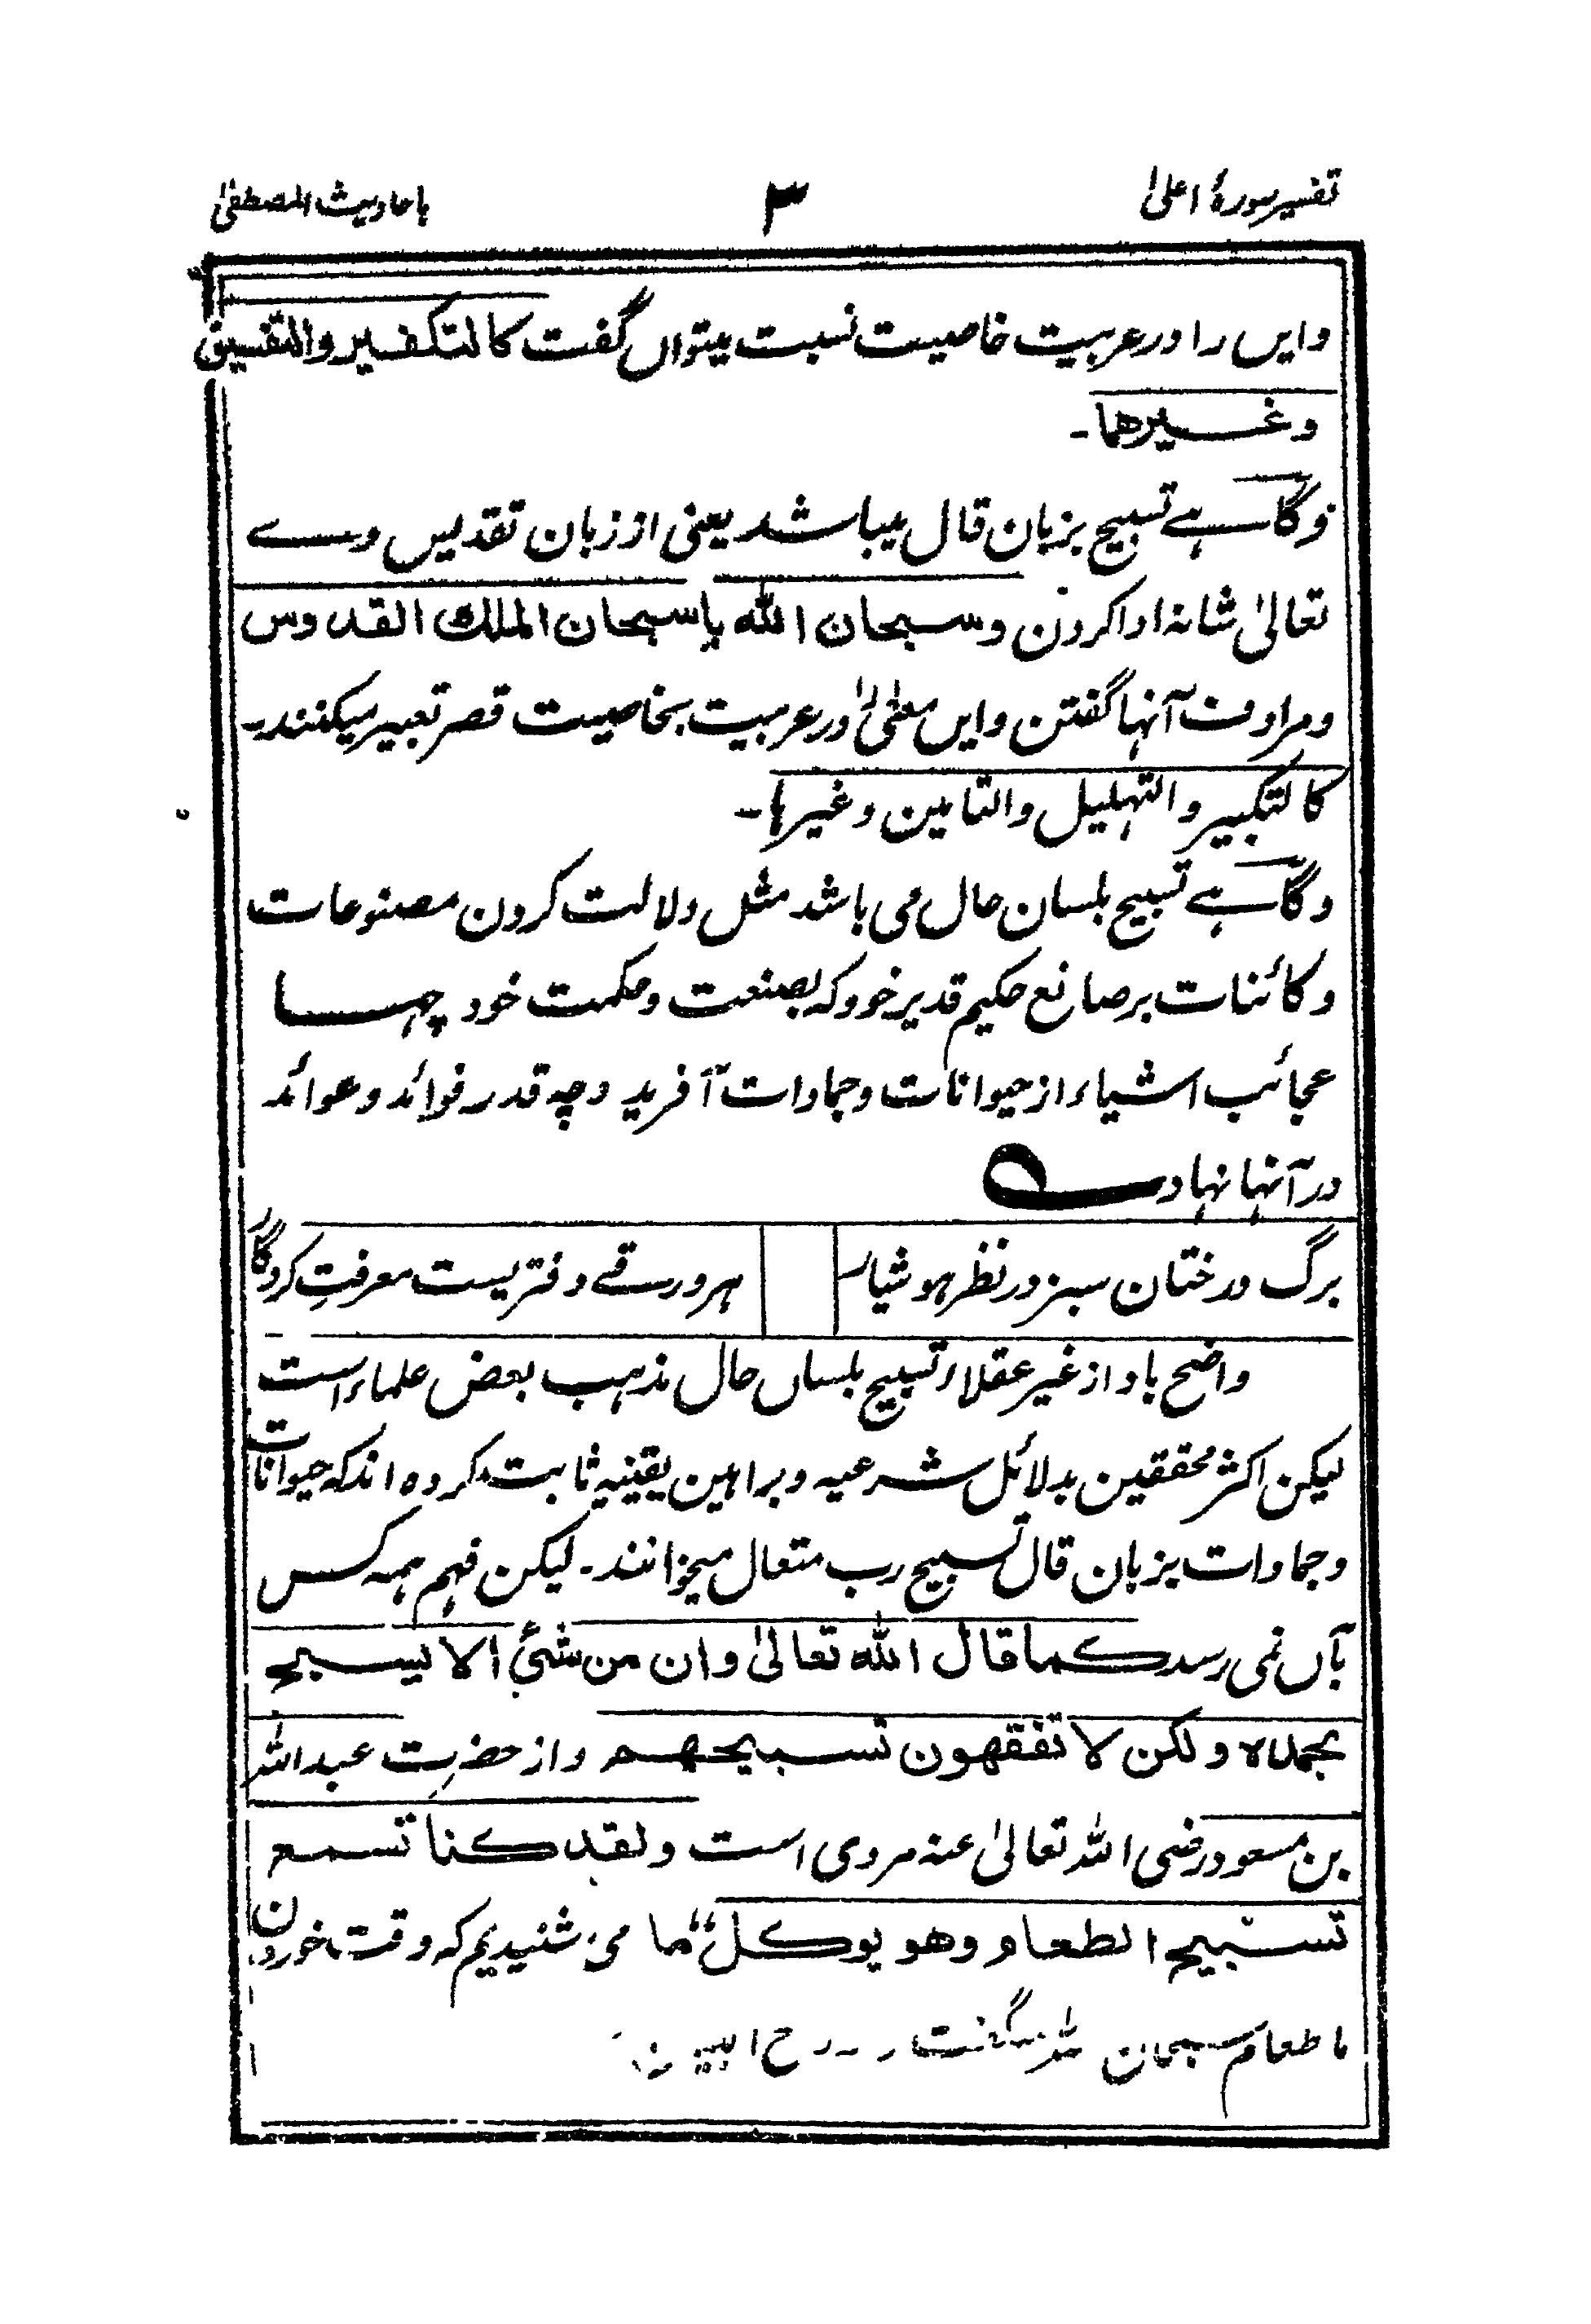 تفسیر سورۂ اعلیٰ ۳ باحادیث المصطفیٰ
و ایں را در عربیت خاصیت نسبت میتواں گفت کالتکفیر والتفسیق
وغیرھما۔
و گاہے تسبیح بزبان قال میباشد یعنی از زبان تقدیس وے
تعالیٰ شانہ ادا کردن و سبحان اللہ یا سبحان الملک القدوس
و مرادف آنہا گفتن و ایں معنیٰ را در عربیت بخاصیت قصر تعبیر میکنند۔
کالتکبیر والتہلیل والتامین وغیرہا۔
و گاہے تسبیح بلسان حال می باشد مثل دلالت کردن مصنوعات
و کائنات بر صانع حکیم قدیر خود کہ بصنعت و حکمت خود چہا
عجائب اشیاء از حیوانات و جمادات آفرید و چہ قدر فوائد و عوائد
در آنہا نہاد ؎
برگ درختان سبز در نظر ہوشیار ہر ورقے دفتریست معرفتِ کردگار
واضح باد از غیر عقلاء تسبیح بلساں حال مذہب بعض علماء است
لیکن اکثر محققین بدلائل شرعیہ و براہین یقینیہ ثابت کردہ اند کہ حیوانات
و جمادات بزبان قال تسبیح رب متعال میخوانند۔ لیکن فہم ہمہ کس
بآں نمی رسد کما قال اللہ تعالیٰ وان من شئ الا یسبح
بحمدہ ولکن لا تفقھون تسبیحھم و از حضرت عبداللہ
بن مسعود رضی اللہ تعالیٰ عنہ مروی است ولقد کنا نسمع
تسبیح الطعام وھو یوکل ما می شنیدیم کہ وقت خوردن
ما طعام سبحان اللہ میگفت